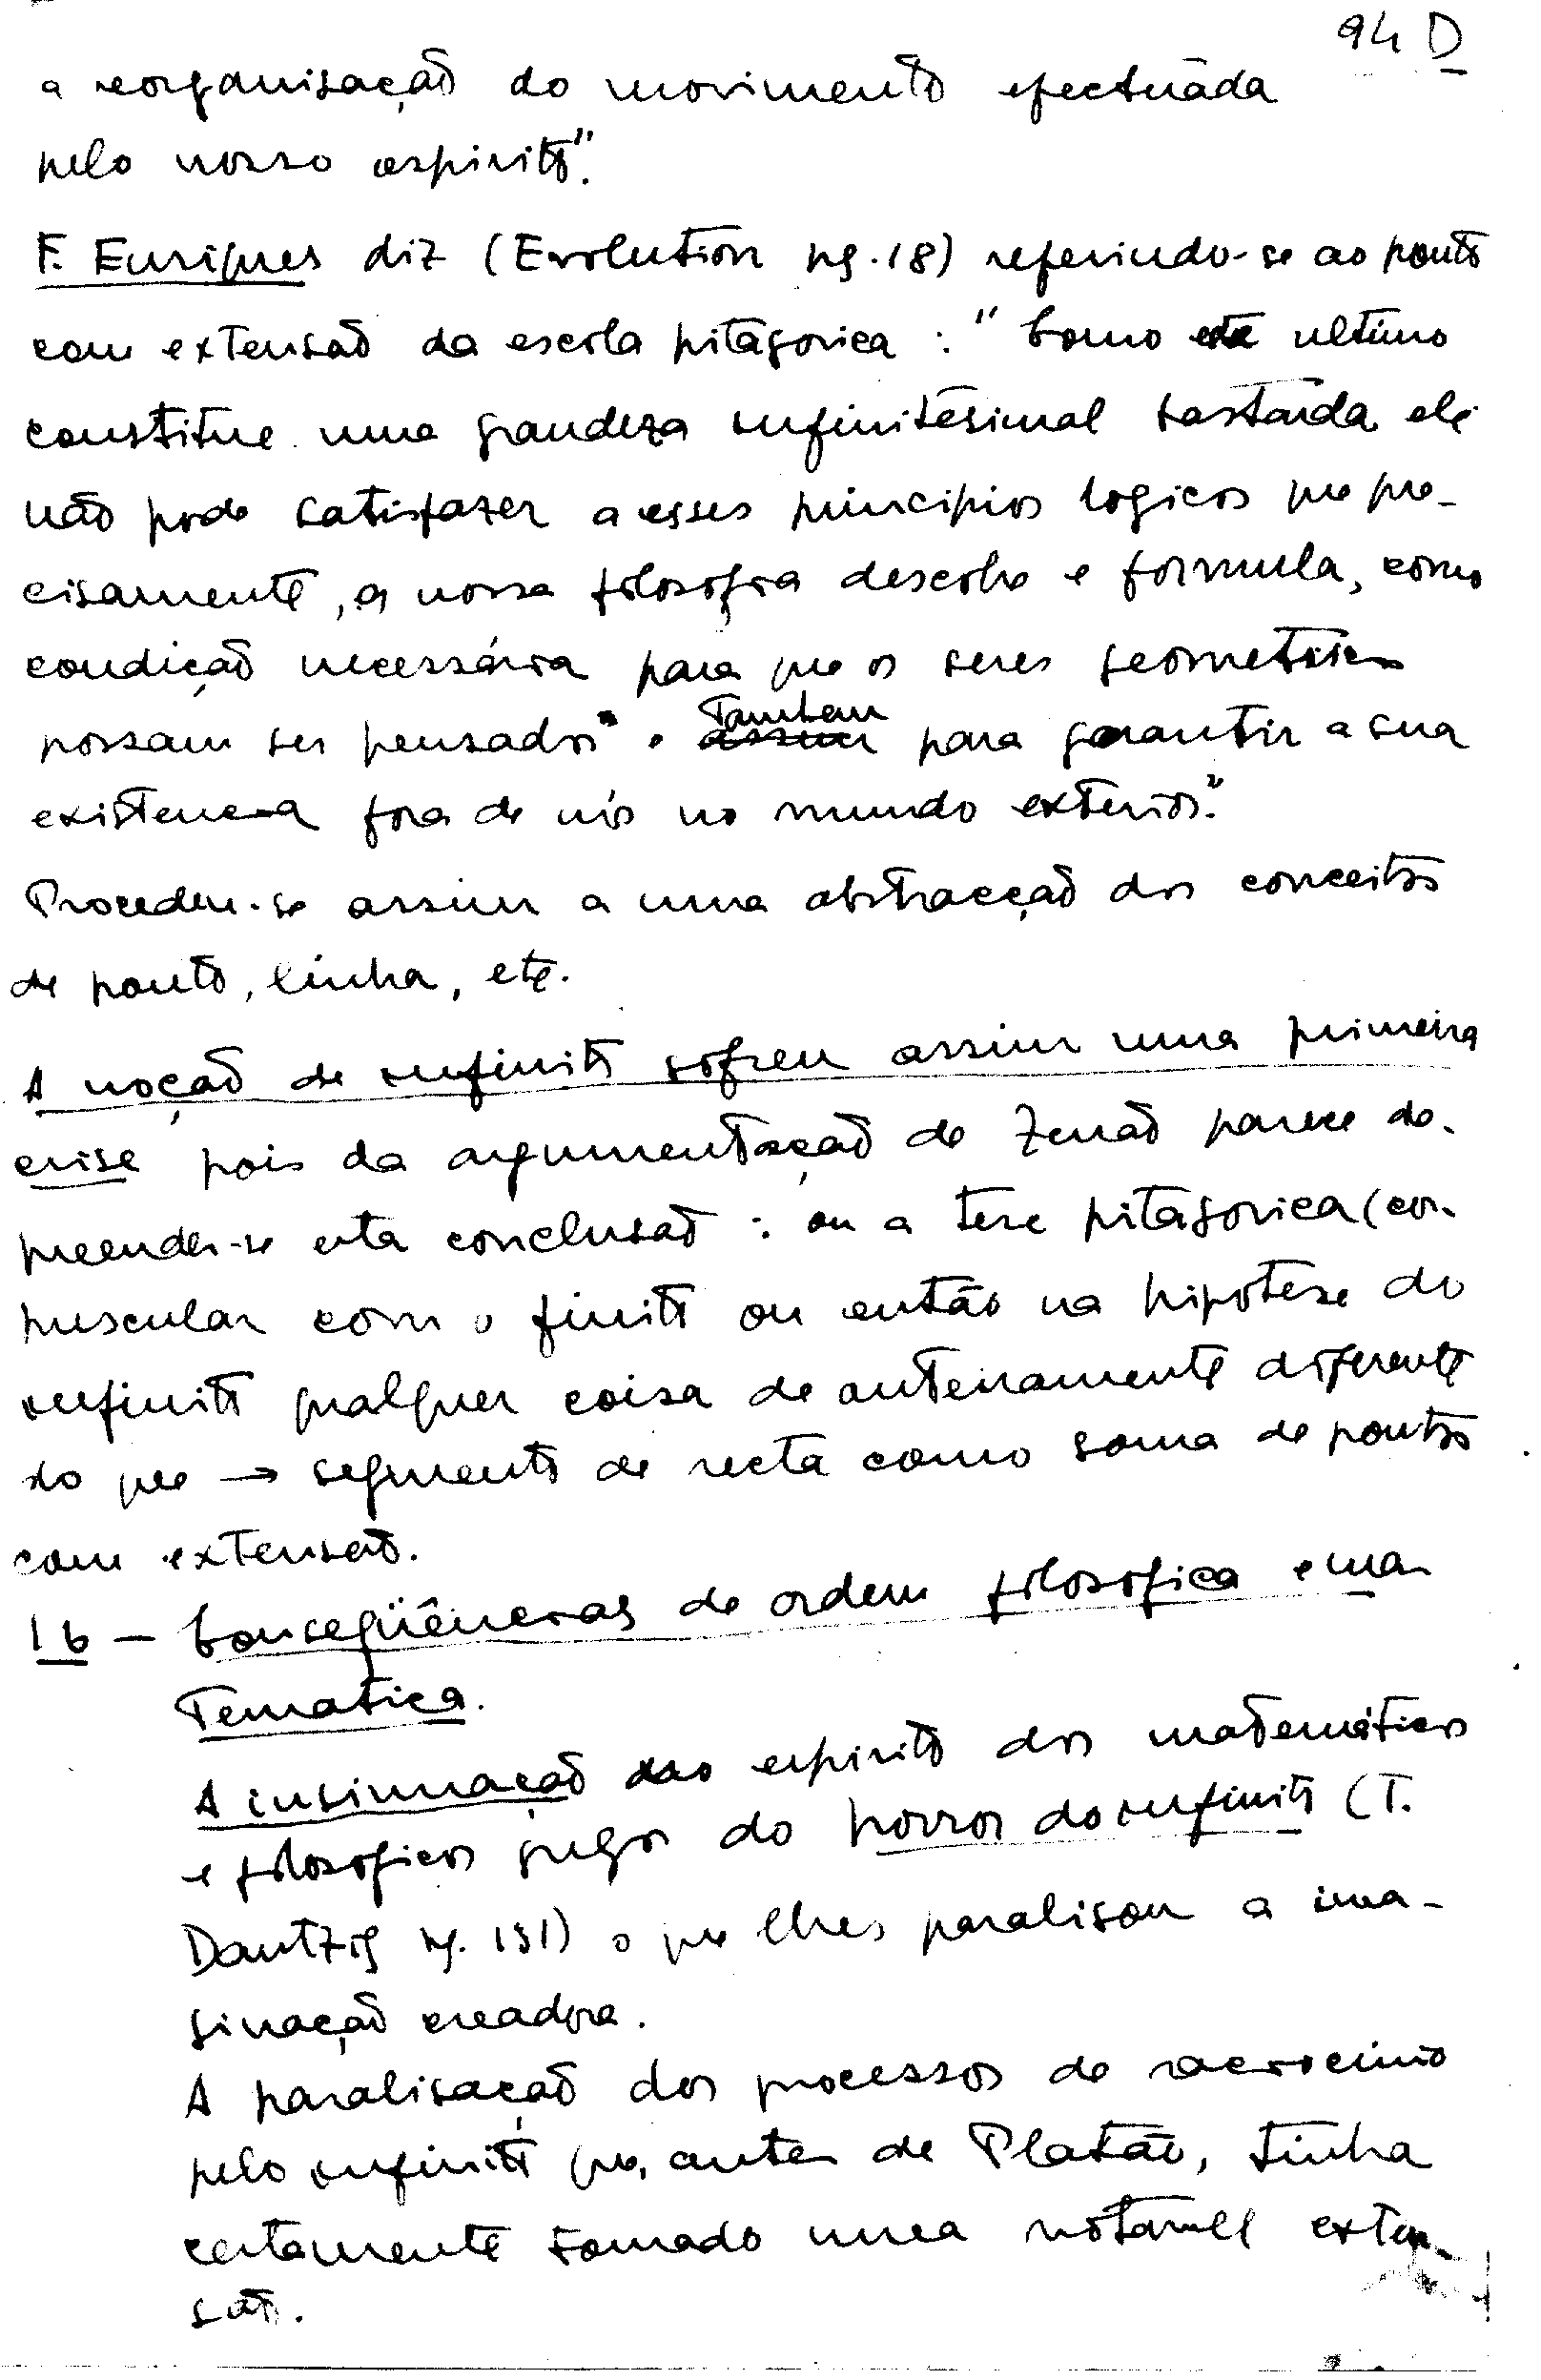 94 D
a reorganisação do movimento efectuada
pelo nosso espirito".
F. Enriques diz (Evolution pg. 18) referindo-se ao ponto
com extensão da escola pitágorica : "Como este ultimo
constitue uma grandeza infinitésimal bastarda ele
não pode satisfazer a esses principios logicos que pre-
cisamente, a nossa filosofia descobre e formula, como
condição necessária para que os seres geometricos
possam ser pensados e tambem para garantir a sua
existencia fora de nós no mundo exterior."
Procedeu-se assim a uma abstracção dos conceitos
de ponto, linha, etc.
A noção de infinito sofreu assim uma primeira
crise pois da argumentação de Zenão parece de-
preender-se esta conclusão : ou a tese pitágorica (cor-
puscular com o finito ou então na hipotese do
infinito qualquer coisa de inteiramente diferente
do que → segmento de recta como soma de pontos
com extensão.
16 - Conseqüências de ordem filosofica e ma-
tematica.
A insinuação no espirito dos matemáticos
e filosoficos gregos do horror do infinito (T.
Dantzig pg. 131) o que lhes paralisou a ima-
ginação creadora.
A paralisação dos processos de raciocinio
pelo infinito que, antes de Platão, tinha
certamente tomado uma notavel exten-
são.